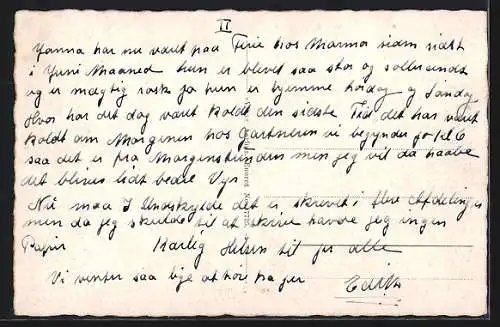 II
Hanna har nu været paa Ferie hos Marmor siden sidst
i Juni Maaned hun er blevet saa stor og solbrændt
og er mægtig rask ja hun er hjemme Lørdag og Søndag
Hvor har det dog været koldt den sidste Tid det har været
koldt om Morgenen hos Gartneren vi begynder jo Kl 6
saa det er fra Morgenstunden men jeg vil da haabe
det bliver lidt bedre Vejr
Nu maa I Undskylde det er skrevet i flere Afdelinger
men da jeg skulde til at skrive havde jeg ingen
Papir Kærlig Hilsen til jer alle
Vi venter saa lige at høre fra jer Edith